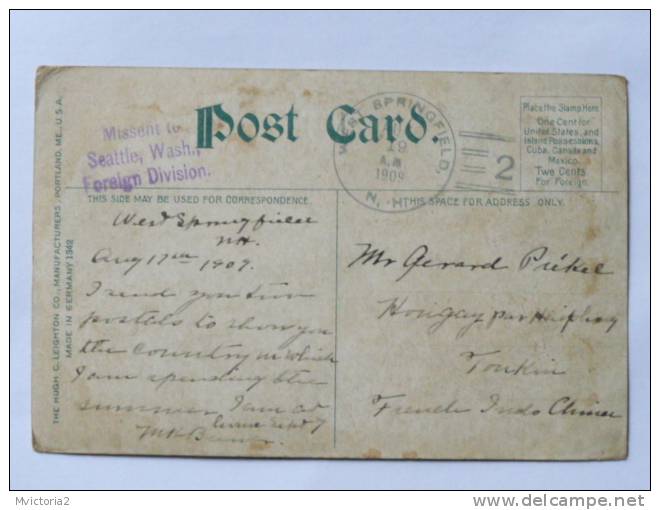 Post Card.
Missent to
Seattle, Wash.,
Foreign Division.
WEST SPRINGFIELD,
19
A.M
1909
N.H.
2
Place the Stamp Here
One Cent for
United States, and
Island Possessions,
Cuba, Canada and
Mexico.
Two Cents
For Foreign.
THIS SIDE MAY BE USED FOR CORRESPONDENCE
THIS SPACE FOR ADDRESS ONLY.
THE HUGH C. LEIGHTON CO., MANUFACTURERS, PORTLAND, ME., U.S.A.
MADE IN GERMANY 1342
West Springfield
NH.
Aug 17th 1909.
I send you two
postals to show you
the country in which
I am spending the
summer. I am at
Sept 7
Mr Gerard
Hongay par Haiphong
Tonkin
French Indo Chine
Mvictoria2
delcampe.net